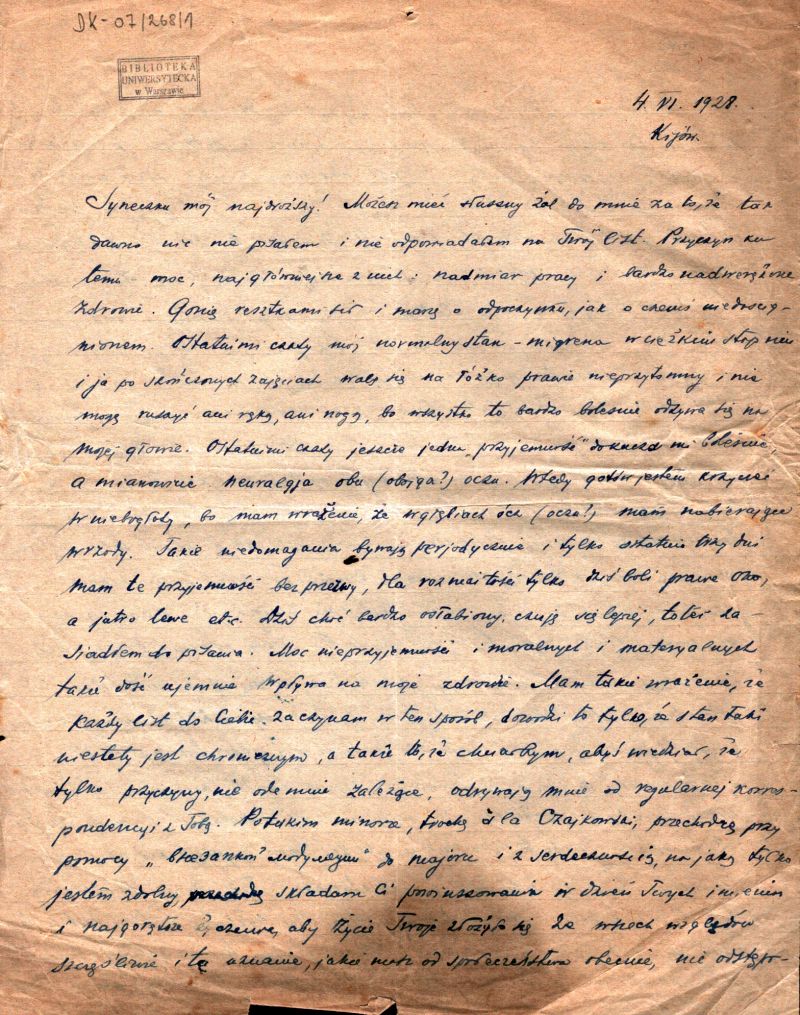 DK-07/268/1
BIBLIOTEKA
UNIWERSYTECKA
w Warszawie
4. VI. 1928.
Kijów.
Syneczku mój najdroższy! Możesz mieć słuszny żal do mnie za to, że tak
dawno nic nie pisałem i nie odpowiadałem na Twój list. Przyczyn ku
temu moc, najgłówniejsze z nich: nadmiar pracy i bardzo nadwerężone
zdrowie. Gonię resztkami sił i marzę o odpoczynku, jak o czemś niedościg-
nionem. Ostatnimi czasy mój normalny stan – migrena w ciężkim stopniu
i ja po skończonych zajęciach walę się na łóżko prawie nieprzytomny i nie
mogę ruszyć ani ręką, ani nogą, bo wszystko to bardzo boleśnie odzywa się na
mojej głowie. Ostatnimi czasy jeszcze jedna „przyjemność" dokucza mi boleśnie,
a mianowicie neuralgja obu (obojga?) oczu. Wtedy gotów jestem krzyczeć
w niebogłosy, bo mam wrażenie, że w głębiach ócz (oczu?) mam nabierające
wrzody. Takie niedomagania bywają perjodycznie i tylko ostatnie trzy dni
mam te przyjemności bez przerwy, dla rozmaitości tylko dziś boli prawe oko,
a jutro lewe etc. Dziś choć bardzo osłabiony, czuję się lepiej, toteż za-
siadłem do pisania. Moc nieprzyjemności i moralnych i materyalnych
także dość ujemnie wpływa na moje zdrowie. Mam takie wrażenie, że
każdy list do Ciebie zaczynam w ten sposób, dowodzi to tylko, że stan taki
niestety jest chronicznym, a także to, że chciałbym, abyś wiedział, że
tylko przyczyny, nie ode mnie zależące, odrywają mnie od regularnej korres-
pondencyi z Tobą. Po takim minorze, trochę à la Czajkowski, przechodzę przy
pomocy „внезапной модуляции" do majoru i z serdecznością, na jaką tylko
jestem zdolny, składam Ci powinszowania w dzień Twych imienin
i najgorętsze życzenia, aby życie Twoje złożyło się ze wszech względów
szczęśliwie i to uznanie, jakie masz od społeczeństwa obecnie, nie odstępo-